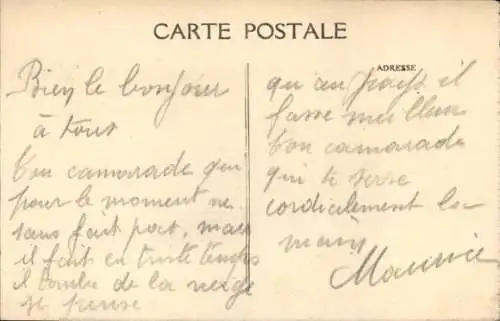 CARTE POSTALE
ADRESSE
Bien le bonjour
à tous
Ton camarade qui
pour le moment ne
sans fait pas, mais
il fait en triste temps
il tombe de la neige
je pense
qu au pays il
fasse meilleur
ton camarade
qui te serre
cordialement la
main
Maurice